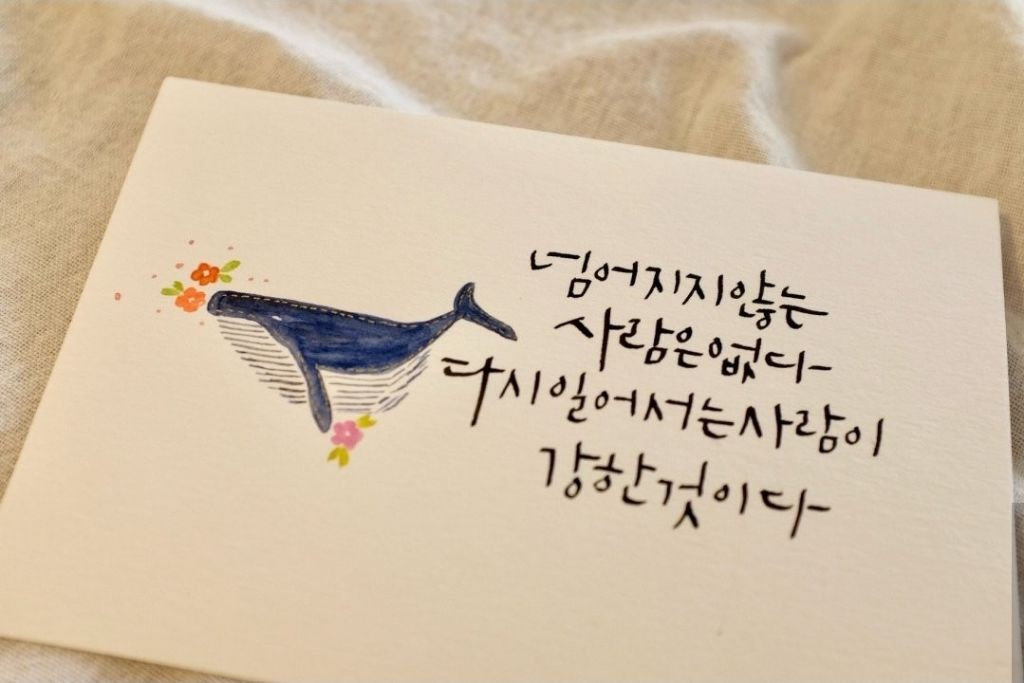 넘어지지않는
사람은없다
다시일어서는사람이
강한것이다